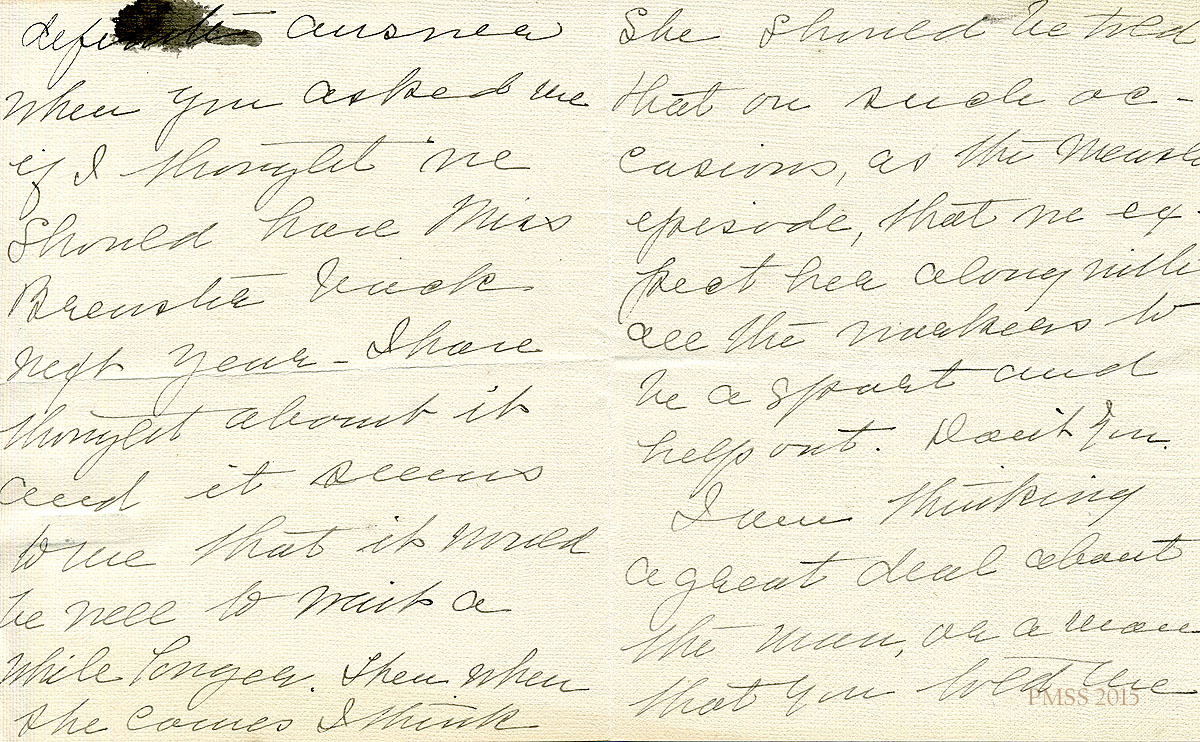 definite answer
when you asked me
if I thought we
should have Miss
Brewster back
next year – I have
thought about it
and it seems
to me that it would
be well to wait a
while longer. Then when
she comes I think
She should be told
that on such oc-
casions, as the measle
episode, that we ex
pect her along with
all the workers to
be a sport and
help out. Don't you.
I am thinking
a great deal about
the man, or a man
that you told me
PMSS 2015